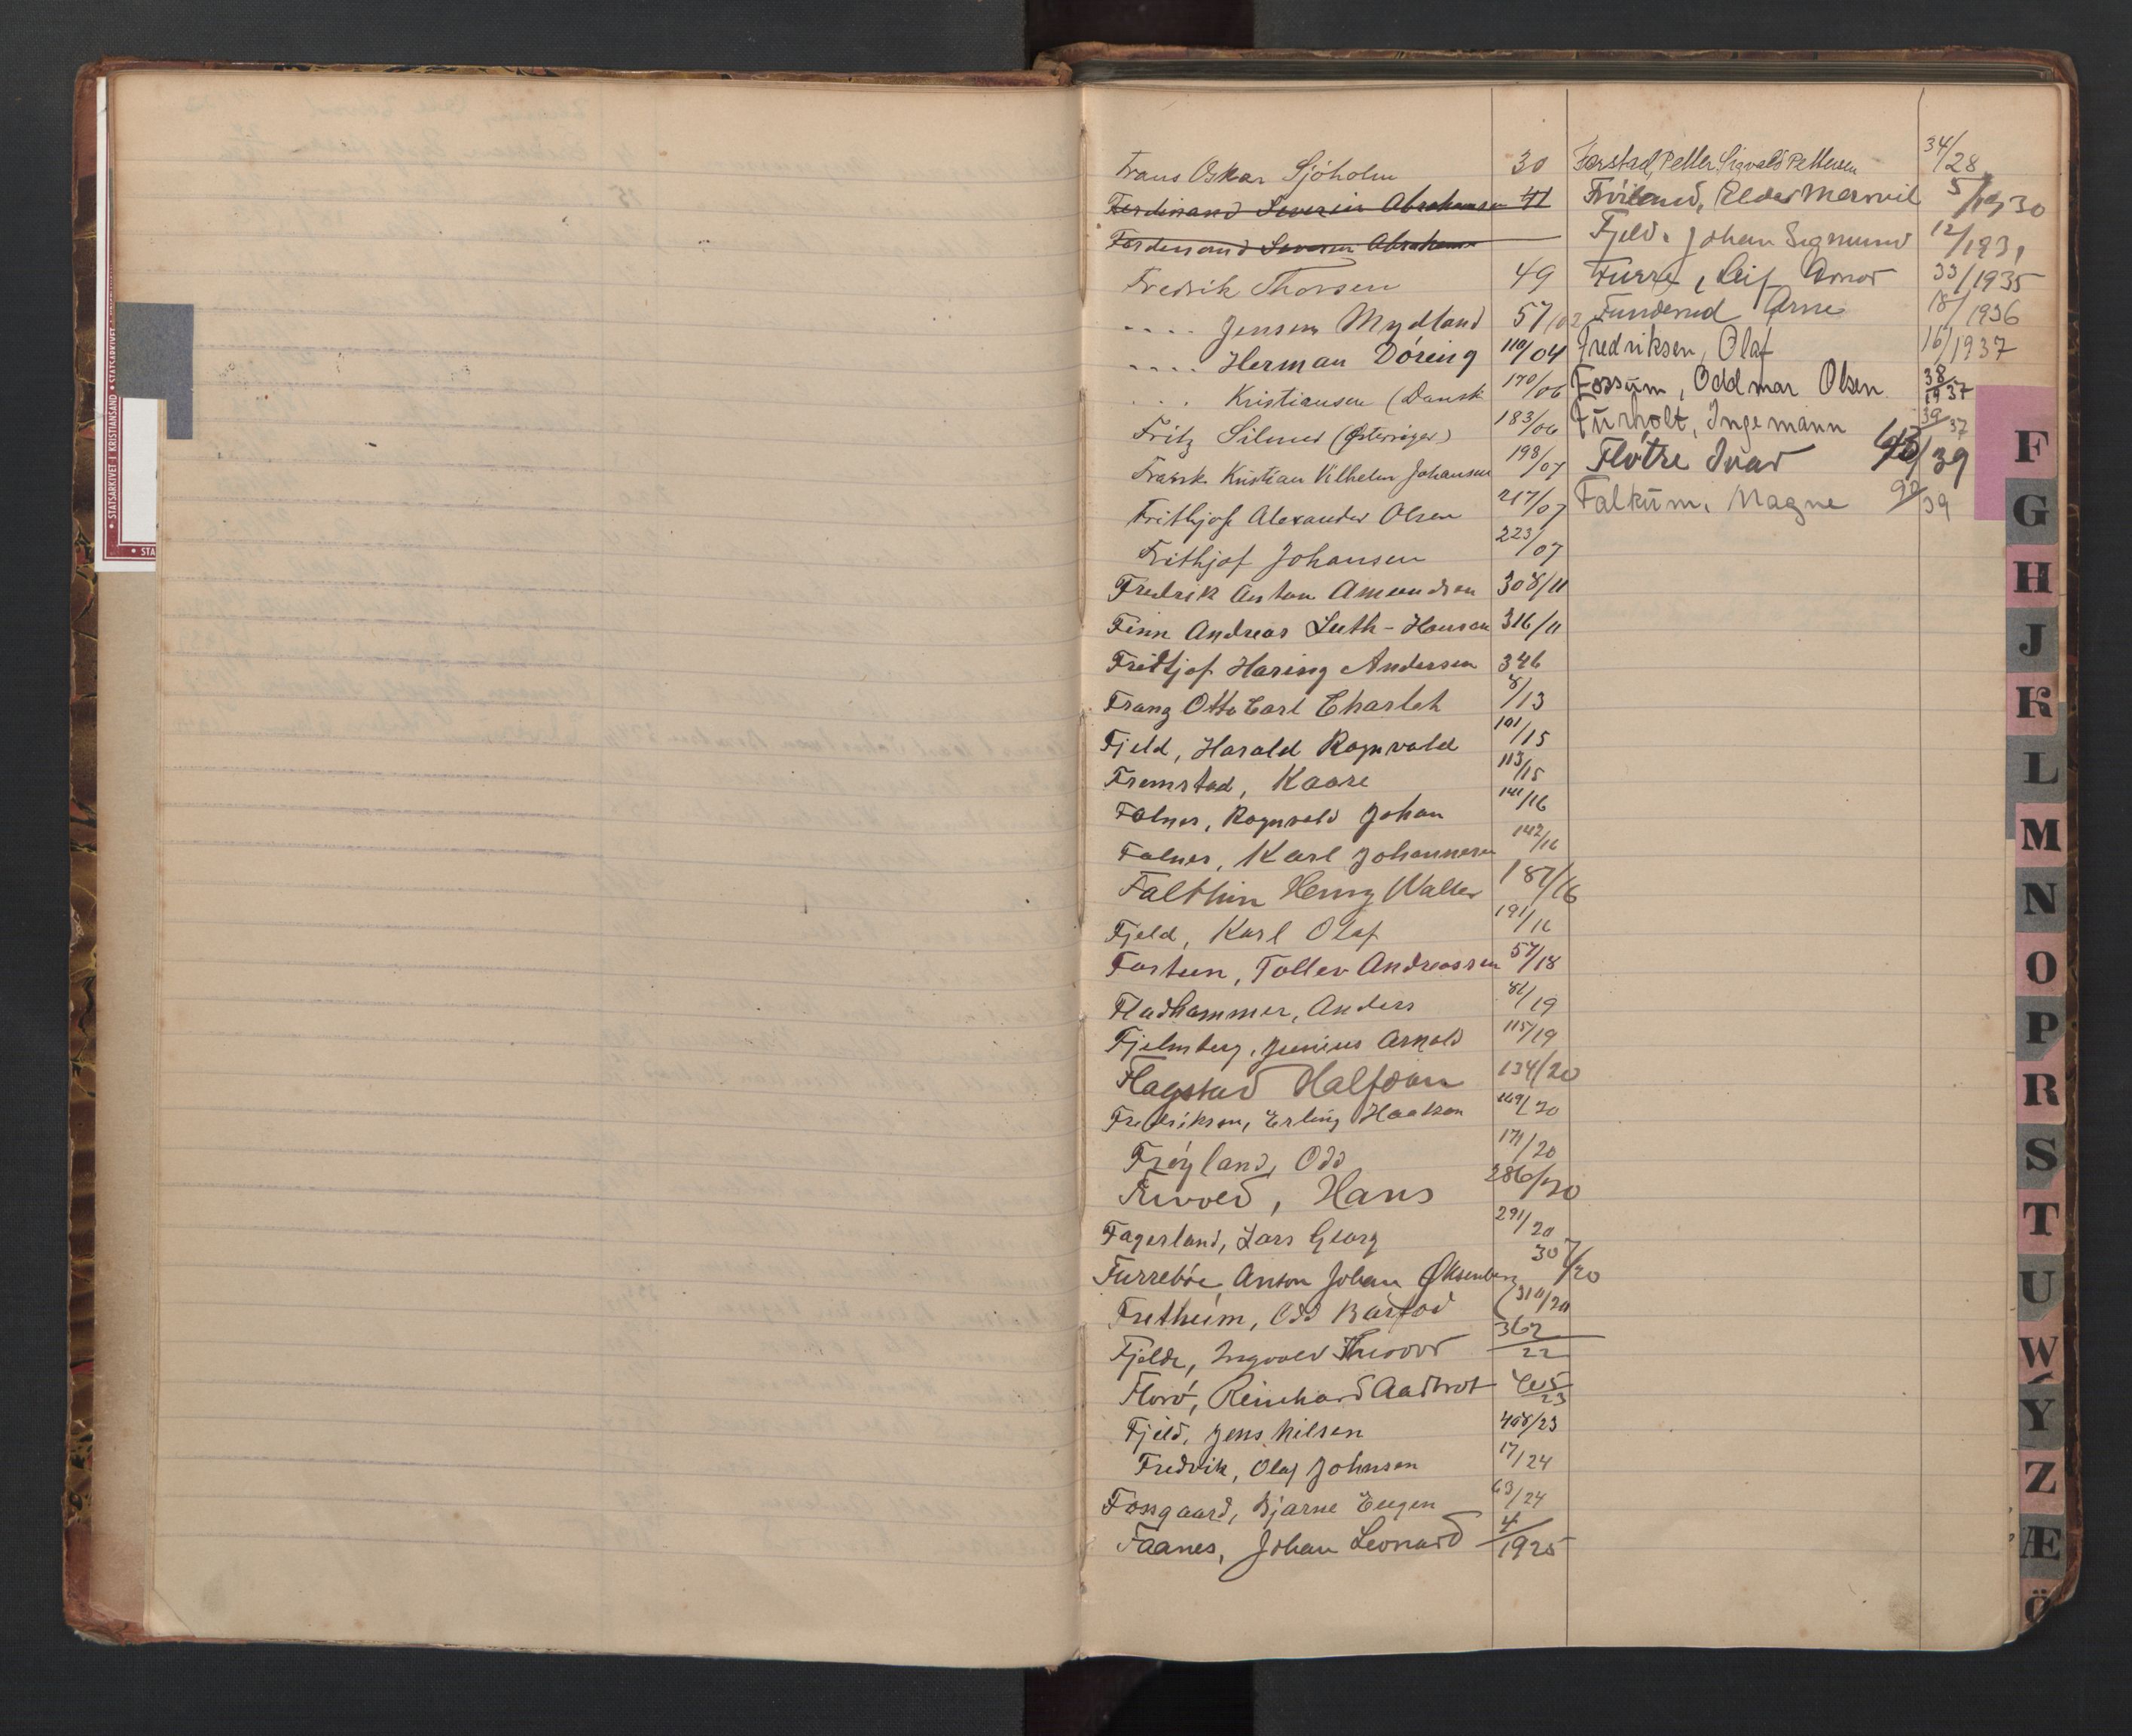 Frans Oskar Sjöholm 30
Ferdinand Severin Abrahamsen 41
Ferdinand Severin Abrahams
Fredrik Thorsen 49
.... Jensen Mydland 57/02
.... Herman Döring 110/04
... Kristiansen (Dansk 170/06
Fritz (Østerriger) 183/06
Frank Kristian Vilhelm Johansen 198/07
Frithjof Alexander Olsen 217/07
Frithjof Johansen 223/07
Fredrik Anton Amundsen 308/11
Finn Andreas Luth-Hansen 316/11
Fridtjof Haring Andersen 346
Franz Otto Carl Charlet 8/13
Fjeld, Harald Ragnvald 101/15
Fremstad, Kaare 113/15
Falnes, Ragnvald Johan 141/16
Falnes, Karl Johannesen 142/16
Falthin Henry Walter 187/16
Fjeld, Karl Olaf 191/16
Fasteen, Tollev Andreassen 57/18
Fladhammer, Anders 81/19
Fjelmberg, Junius Arnold 115/19
Flagstad Halfdan 134/20
Fredrikson, Erling Haakon 169/20
Frøyland, Odd 171/20
Hans 286/20
Fagerland, Lars Georg 291/20
Furrebøe, Anton Johan 307/20
Fretheim, Odd Barfod (310/20
Fjelde, Ingvald Theodor 362/22
Florö, Reinhard 405/23
Fjeld, Jens Nilsen 408/23
Fredvik, Olaf Johnsen 17/24
Fossgaard, Bjarne Eugen 63/24
Faanes, Johan Leonard 4/1925
Farstad, Petter Sigvald Pettersen 34/28
Fröiland, Peder 5/1930
Fjeld, Johan Sigmund 12/1931
Furre, Leif Arnor 33/1935
Funderud Arne 18/1936
Fredriksen, Olaf 16/1937
Fossum, Oddmar Olsen 38/1937
Furholt, Ingemann 39/37
Fløtre Ivar /39
Falkum, Magne 90/39
F
G
H
J
K
L
M
N
O
P
R
S
T
U
W
Y
Z
Æ
Ö
• STATSARKIVET I KRISTIANSAND • STATSARKIVET
• STA